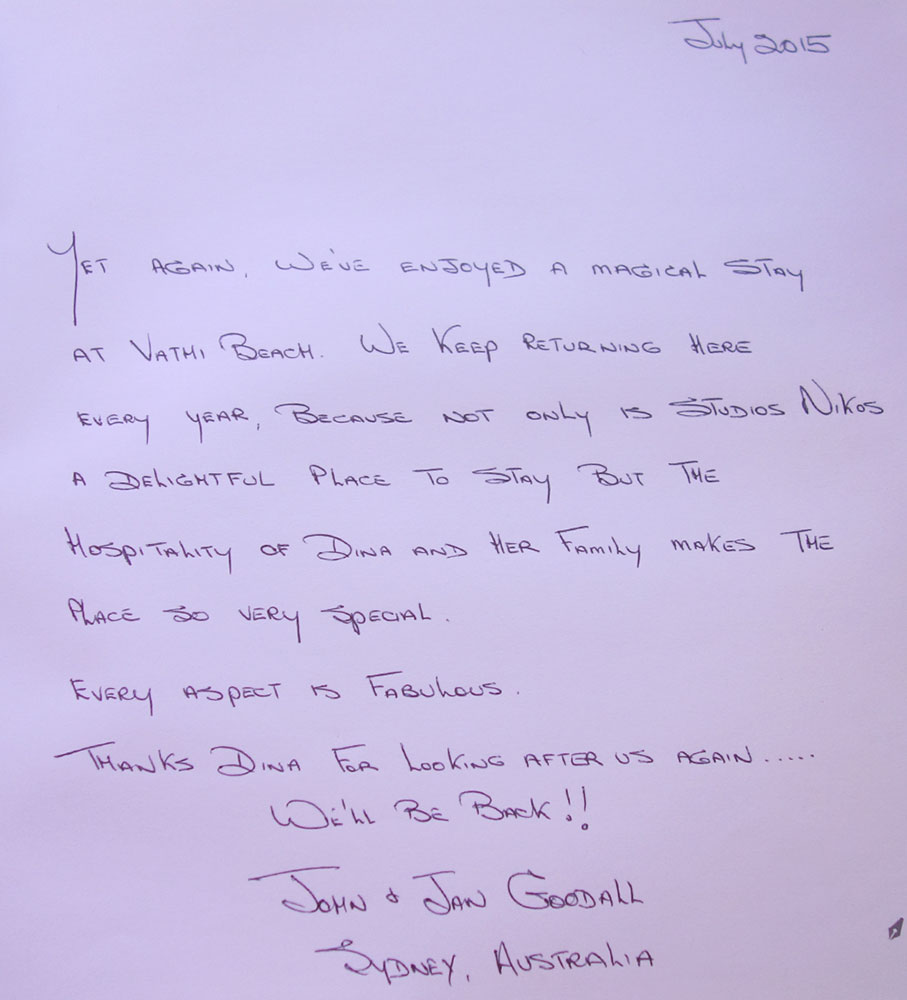 July 2015
Yet again, we've enjoyed a magical stay
at Vathi Beach. We keep returning here
every year, because not only is Studios Nikos
a delightful place to stay but the
hospitality of Dina and her family makes the
place so very special.
Every aspect is fabulous.
Thanks Dina for looking after us again.....
We'll be back!!
John & Jan Goodall
Sydney, Australia